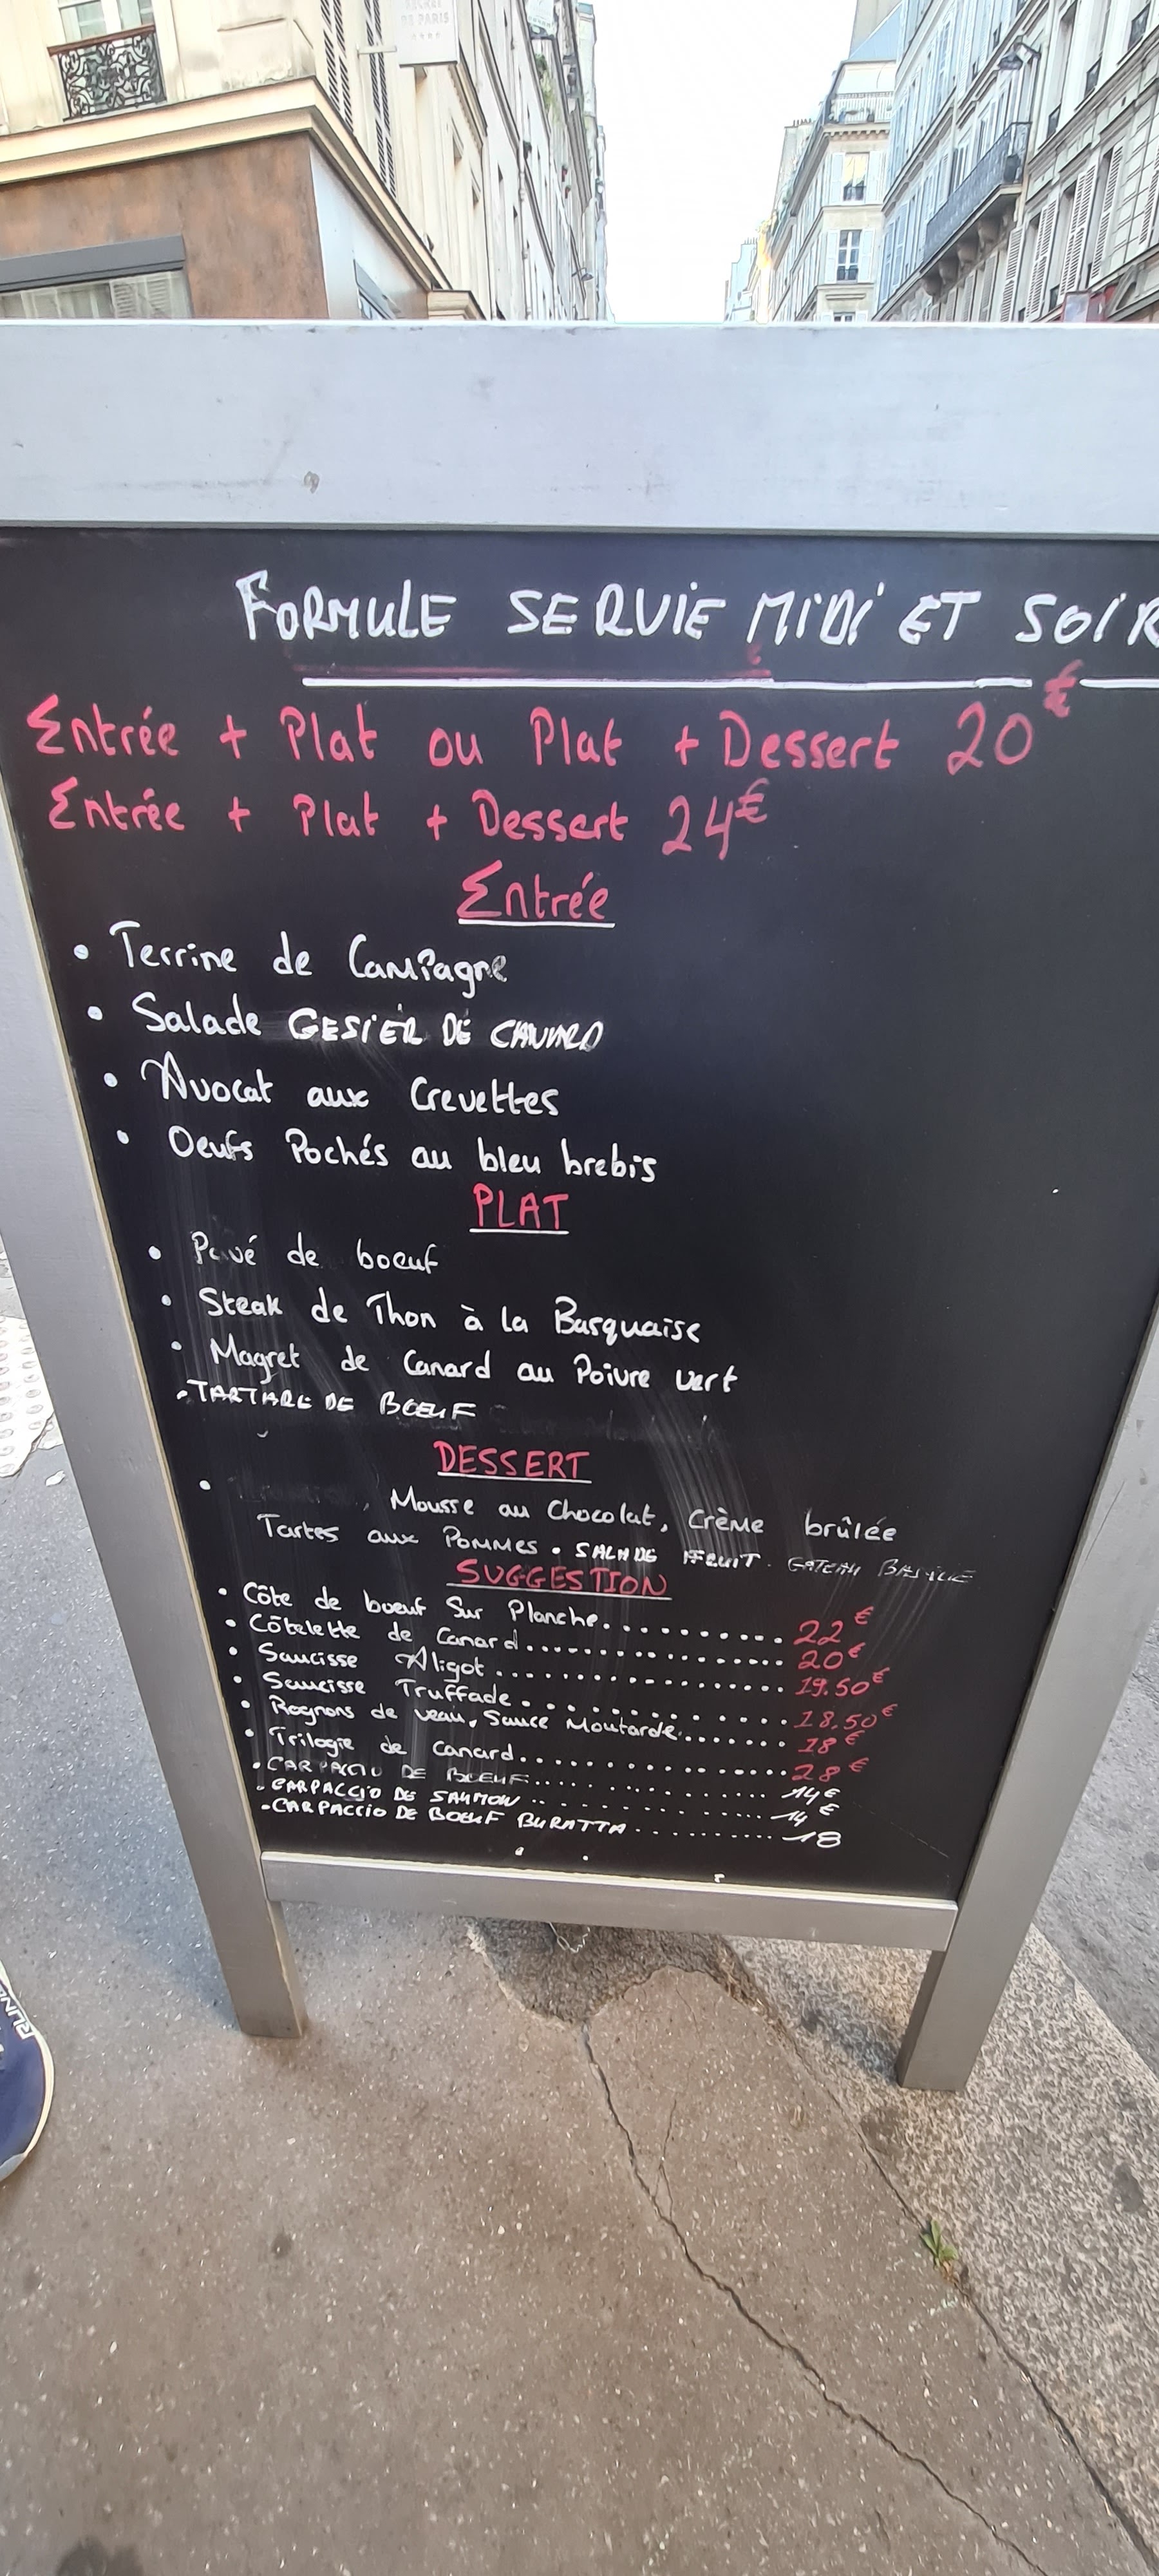 SECRET
DE PARIS
FORMULE SERVIE MIDI ET SOIR
Entrée + Plat ou Plat + Dessert 20€
Entrée + Plat + Dessert 24€
Entrée
• Terrine de Campagne
• Salade GESIER DE CANARD
• Avocat aux Crevettes
• Oeufs Pochés au bleu brebis
PLAT
• Pavé de boeuf
• Steak de Thon à la Basquaise
• Magret de Canard au Poivre vert
• TARTARE DE BŒUF
DESSERT
• , Mousse au Chocolat, Crème brûlée
Tartes aux Pommes • SALADE FRUIT. GATEAU
SUGGESTION
• Côte de boeuf Sur Planche.......... 22€
• Côtelette de Canard............... 20€
• Saucisse Aligot................ 19.50€
• Saucisse Truffade.............. 18.50€
• Rognons de veau, Sauce Moutarde........ 18€
• Trilogie de Canard............... 28€
• CARPACCIO DE BŒUF............. 14€
• CARPACCIO DE SAUMON.......... 14€
• CARPACCIO DE BŒUF BURATTA........... 18
RUN